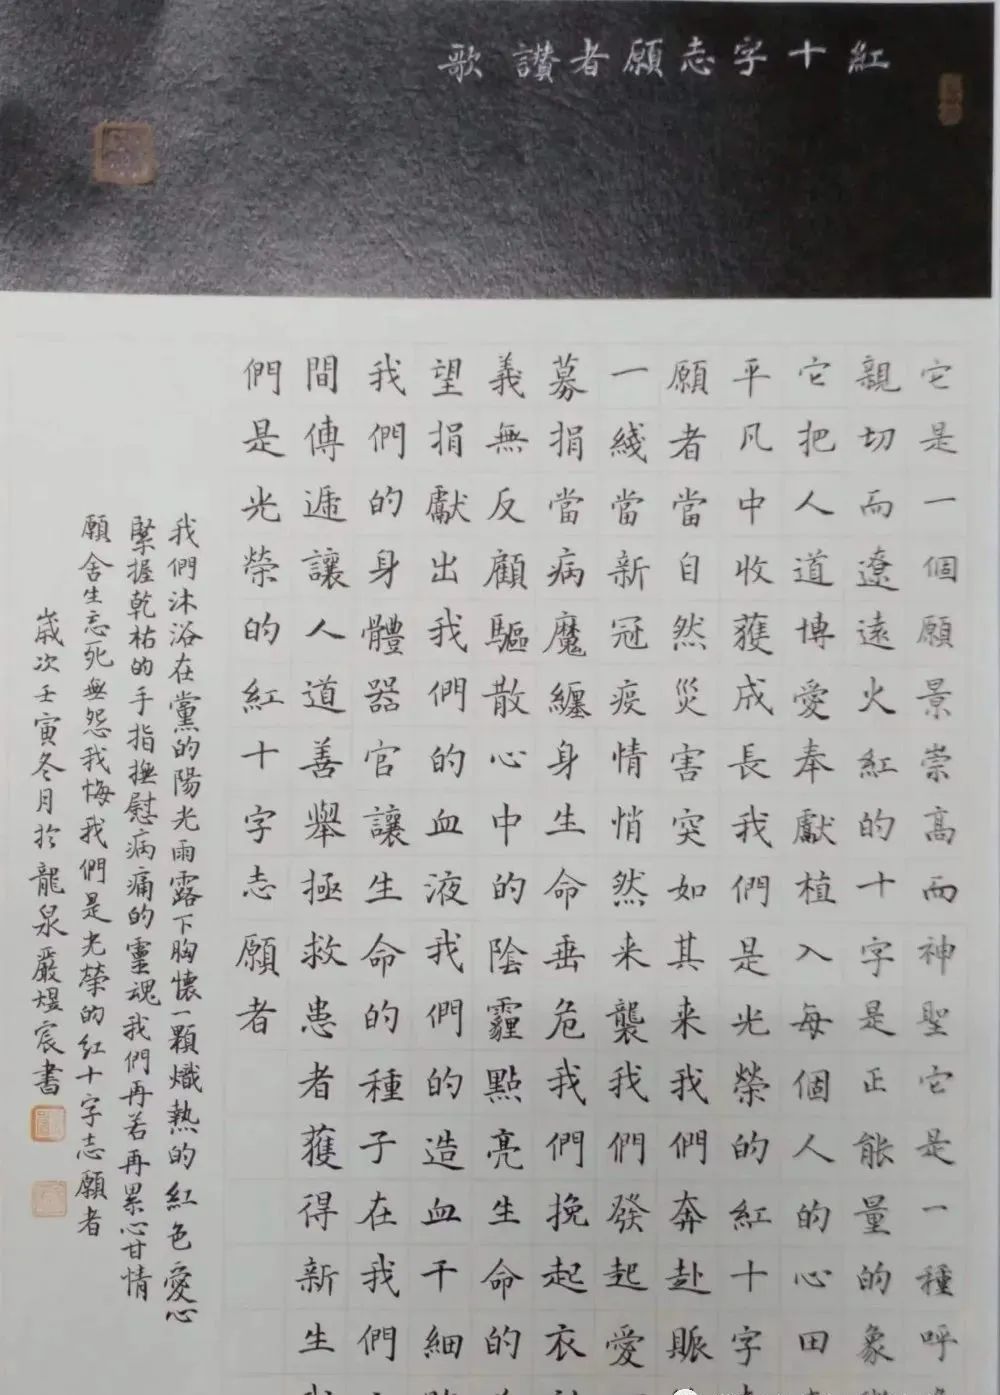 紅十字志願者讃歌
它是一個願景崇高而神聖它是一種呼
親切而遼遠火紅的十字是正能量的象
它把人道博愛奉獻植入每個人的心田
平凡中收獲成長我們是光榮的紅十字
願者當自然災害突如其来我們奔赴賑
一綫當新冠疫情悄然来襲我們發起愛
募捐當病魔纏身生命垂危我們挽起衣
義無反顧驅散心中的陰霾點亮生命的
望捐獻出我們的血液我們的造血干細
我們的身體器官讓生命的種子在我們
間傳遞讓人道善舉拯救患者獲得新生
們是光榮的紅十字志願者
我們沐浴在黨的陽光雨露下胸懷一顆熾熱的紅色愛心
緊握乾祜的手指撫慰病痛的靈魂我們再若再累心甘情
願舍生忘死無怨我悔我們是光榮的紅十字志願者
歲次壬寅冬月於龍泉嚴煜宸書